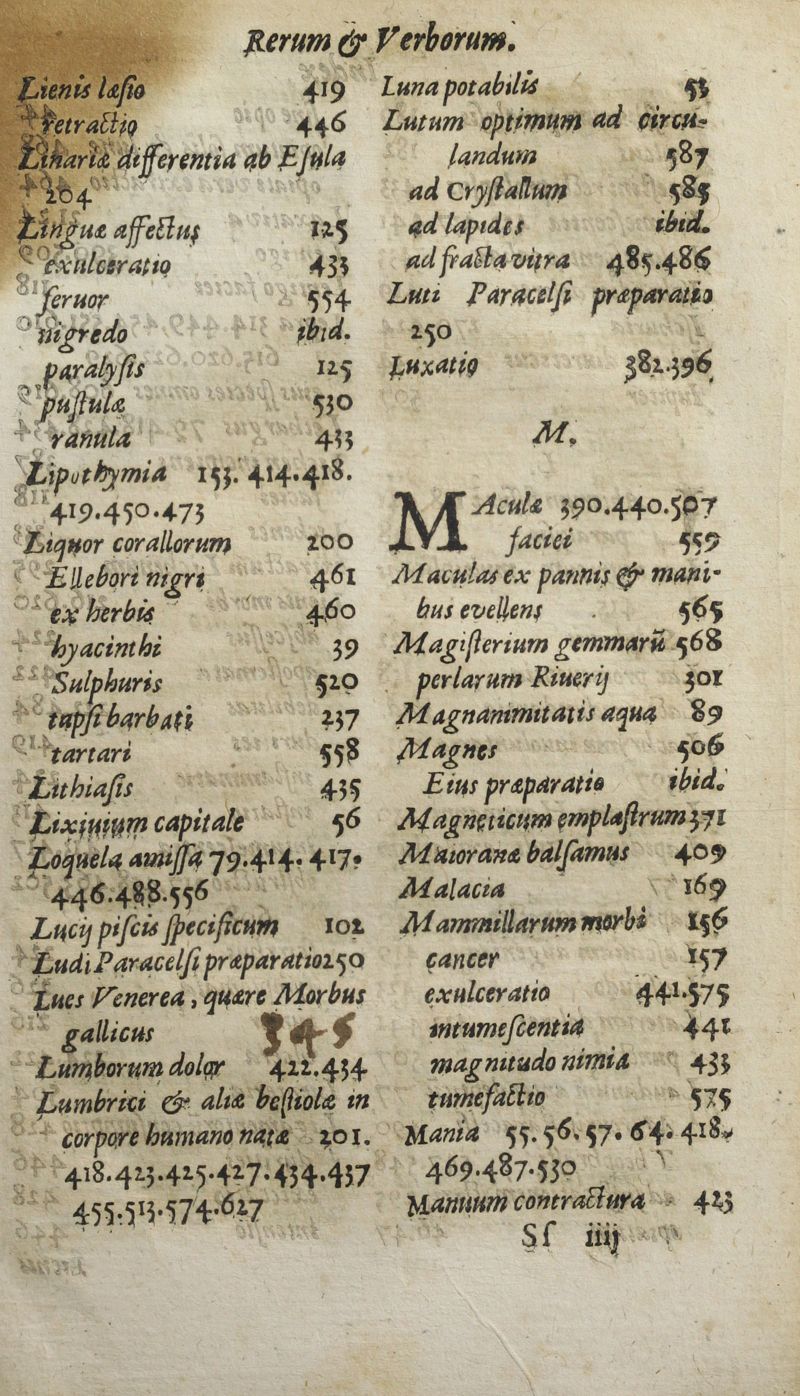 Rerum & Verborum.
Lienis læſio 419
retractio 446
Linariæ differentia ab Eſula
204
Linguæ affectus 125
exulceratio 433
feruor 554
nigredo ibid.
paralyſis 125
puſtulæ 530
ranula 433
Lipothymia 153. 414.418.
419.450.473
Liquor corallorum 200
Ellebori nigri 461
ex herbis 460
hyacinthi 39
Sulphuris 520
tapſi barbati 237
tartari 558
Lithiaſis 435
Lixiuium capitale 56
Loquela amiſſa 79.414. 417.
446.488.556
Lucij piſcis ſpecificum 102
Ludi Paracelſi præparatio 250
Lues Venerea, quære Morbus
gallicus 345
Lumborum dolor 422.434
Lumbrici & aliæ beſtiolæ in
corpore humano natæ 201.
418.423.425.427.434.437
455.513.574.627
Luna potabilis 53
Lutum optimum ad circu-
landum 587
ad Cryſtallum 585
ad lapides ibid.
ad fracta vitra 485.486
Luti Paracelſi præparatio
250
Luxatio 382.396
M.
MAculæ 390.440.507
faciei 559
Maculas ex pannis & mani-
bus evellens 565
Magiſterium gemmarũ 568
perlarum Riuerij 301
Magnanimitatis aqua 89
Magnes 506
Eius præparatio ibid.
Magneticum emplaſtrum 371
Maioranæ balſamus 409
Malacia 169
Mammillarum morbi 156
cancer 157
exulceratio 441.575
intumeſcentia 441
magnitudo nimia 433
tumefactio 575
Mania 55. 56. 57. 64. 418.
469.487.530
Manuum contractura 423
Sſ iiij